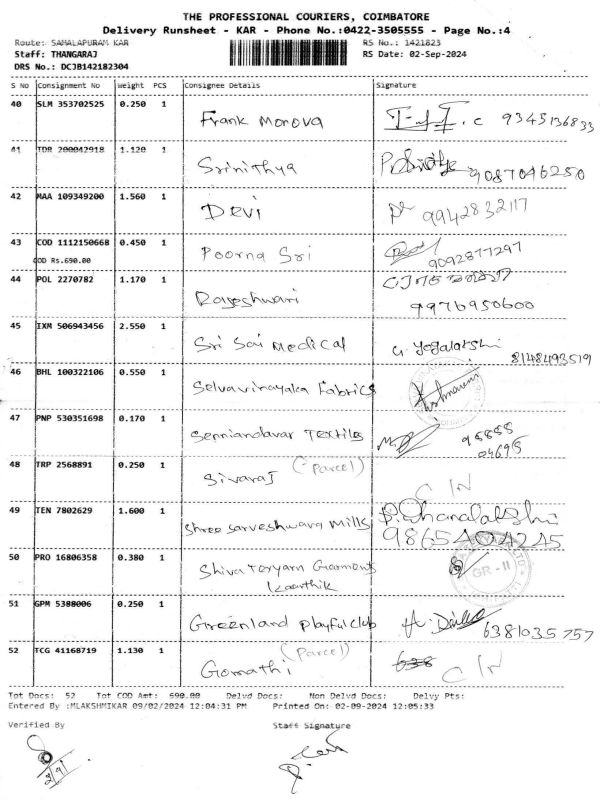 THE PROFESSIONAL COURIERS, COIMBATORE
Delivery Runsheet - KAR - Phone No.:0422-3505555 - Page No.:4
Route: SAMALAPURAM KAR RS No.: 1421823
Staff: THANGARAJ RS Date: 02-Sep-2024
DRS No.: DCJB142182304
S No Consignment No Weight PCS Consignee Details Signature
40 SLM 353702525 0.250 1 Frank Morova 9345136833
41 TDR 200042918 1.120 1 Srinithya 9087046250
42 MAA 109349200 1.560 1 Devi 9942832117
43 COD 1112150668 0.450 1 Poorna Sri 9092877297
COD Rs.690.00
44 POL 2270782 1.170 1 Rajeshwari 9976950600
45 IXM 506943456 2.550 1 Sri Sai Medical G. Yogalakshi 8148493519
46 BHL 100322106 0.550 1 Selvavinayaka Fabrics
47 PNP 530351698 0.170 1 Senniandavar Textiles 95888 04695
48 TRP 2568891 0.250 1 Sivaraj (Parcel) C/N
49 TEN 7802629 1.600 1 Shree Sarveshwara Mills P. Dhanalakshi
9865404245
50 PRO 16806358 0.380 1 Shiva Toryarn Garments GR - II
Kaarthik
51 GPM 5388006 0.250 1 Greenland Playful Club 6381035757
52 TCG 41168719 1.130 1 Gomathi (Parcel) C/N
Tot Docs: 52 Tot COD Amt: 690.00 Delvd Docs: Non Delvd Docs: Delvy Pts:
Entered By :MLAKSHMIKAR 09/02/2024 12:04:31 PM Printed On: 02-09-2024 12:05:33
Verified By Staff Signature
2/9/